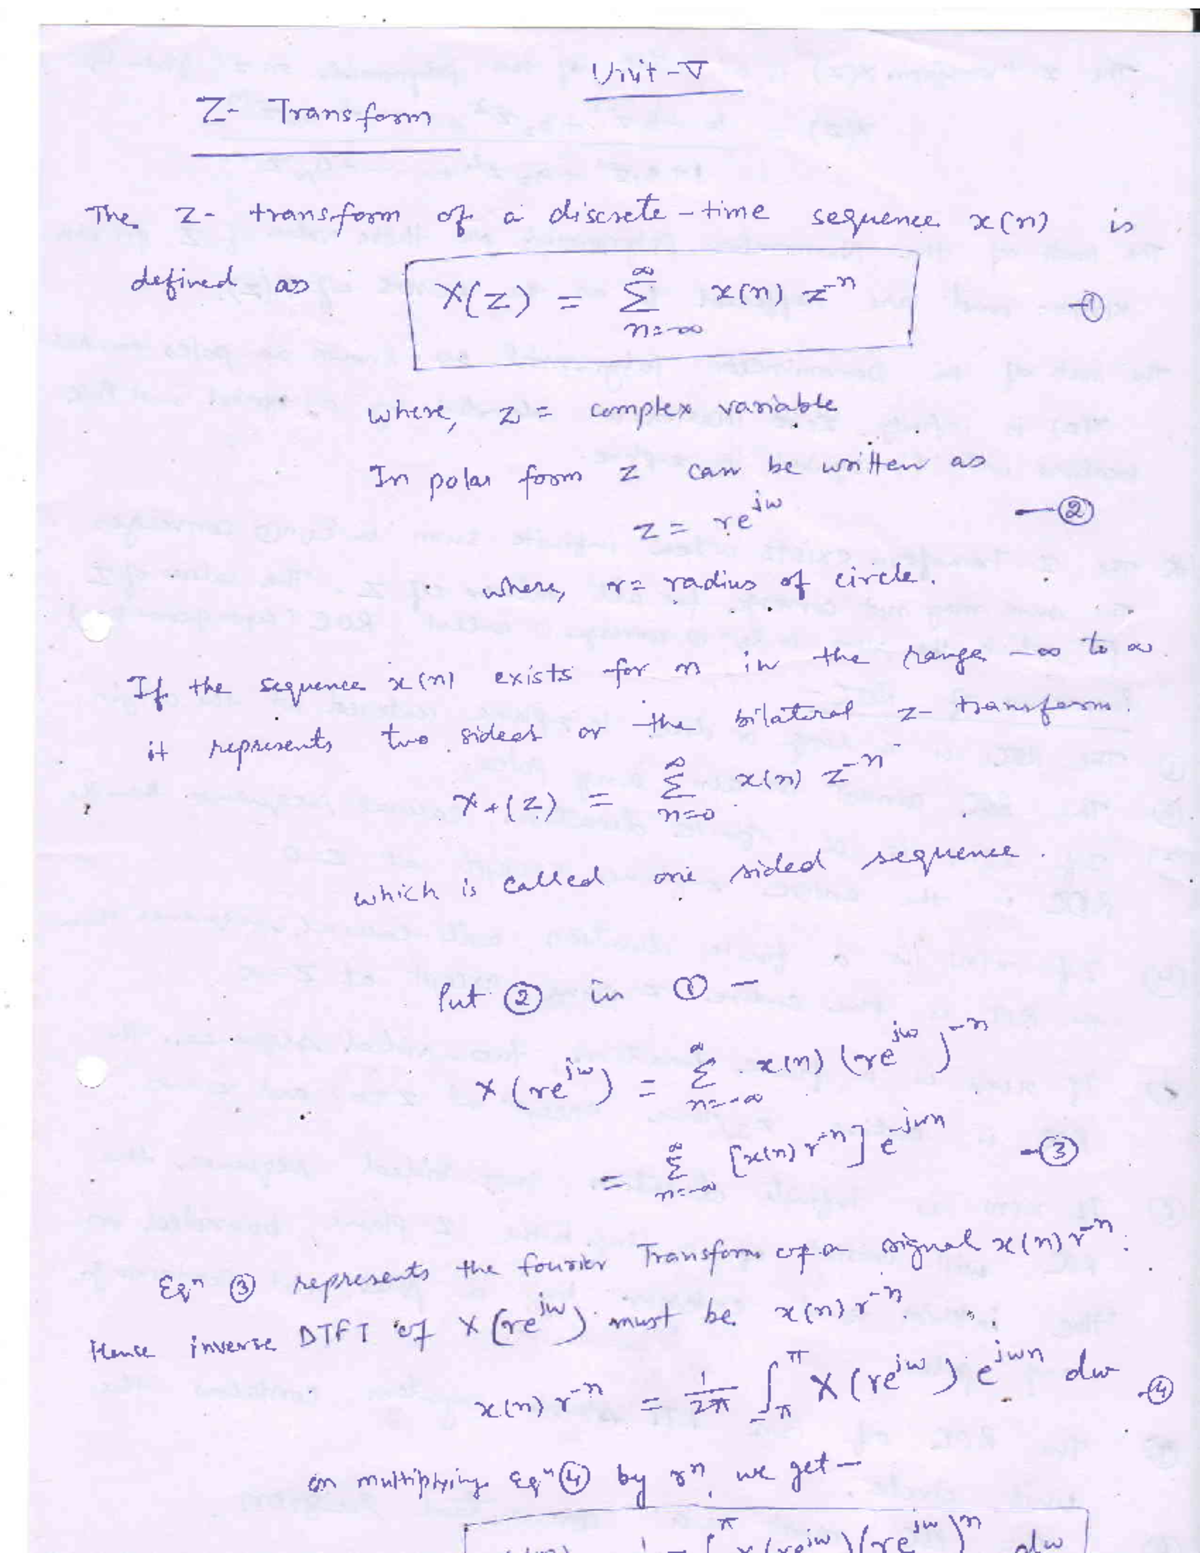 Unit-V
Z- Transform
The Z- transform of a discrete-time sequence x(n) is
defined as X(z) = ∞ Σ n=-∞ x(n) z^-n —①
where, z = complex variable
In polar form z can be written as
z = re^jw —②
where, r = radius of circle.
If the sequence x(n) exists for n in the range -∞ to ∞
it represents two sided or the bilateral z- transform.
X+(z) = ∞ Σ n=0 x(n) z^-n
which is called one sided sequence.
Put ② in ① —
X(re^jw) = ∞ Σ n=-∞ x(n) (re^jw)^-n
= ∞ Σ n=-∞ [x(n) r^-n] e^-jwn —③
Eqⁿ ③ represents the fourier Transform of a signal x(n) r^-n.
Hense inverse DTFT of X(re^jw) must be x(n) r^-n.
x(n) r^-n = 1/2π ∫ -π π X(re^jw) e^jwn dw —④
on multiplying Eqⁿ ④ by r^n, we get —
π X(re^jw)(re^jw)^n dw